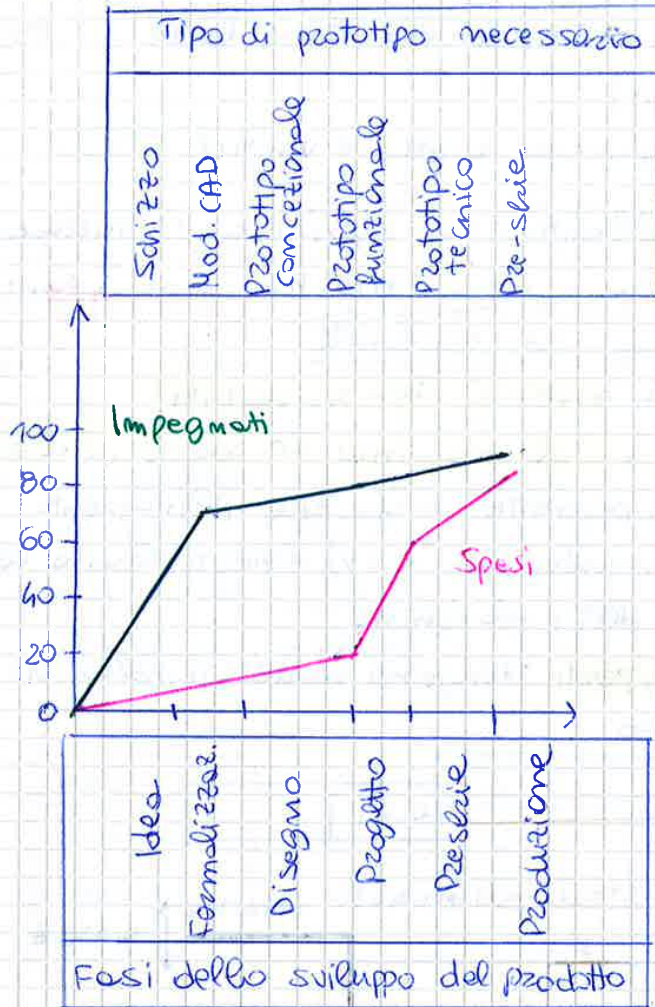 Tipo di prototipo necessario
Schizzo
Mod. CAD
Prototipo
concezionale
Prototipo
funzionale
Prototipo
tecnico
Pre-serie
Impegnati
100
80
60
40
20
0
Spesi
Idea
Formalizzaz.
Disegno
Progetto
Preserie
Produzione
Fasi dello sviluppo del prodotto